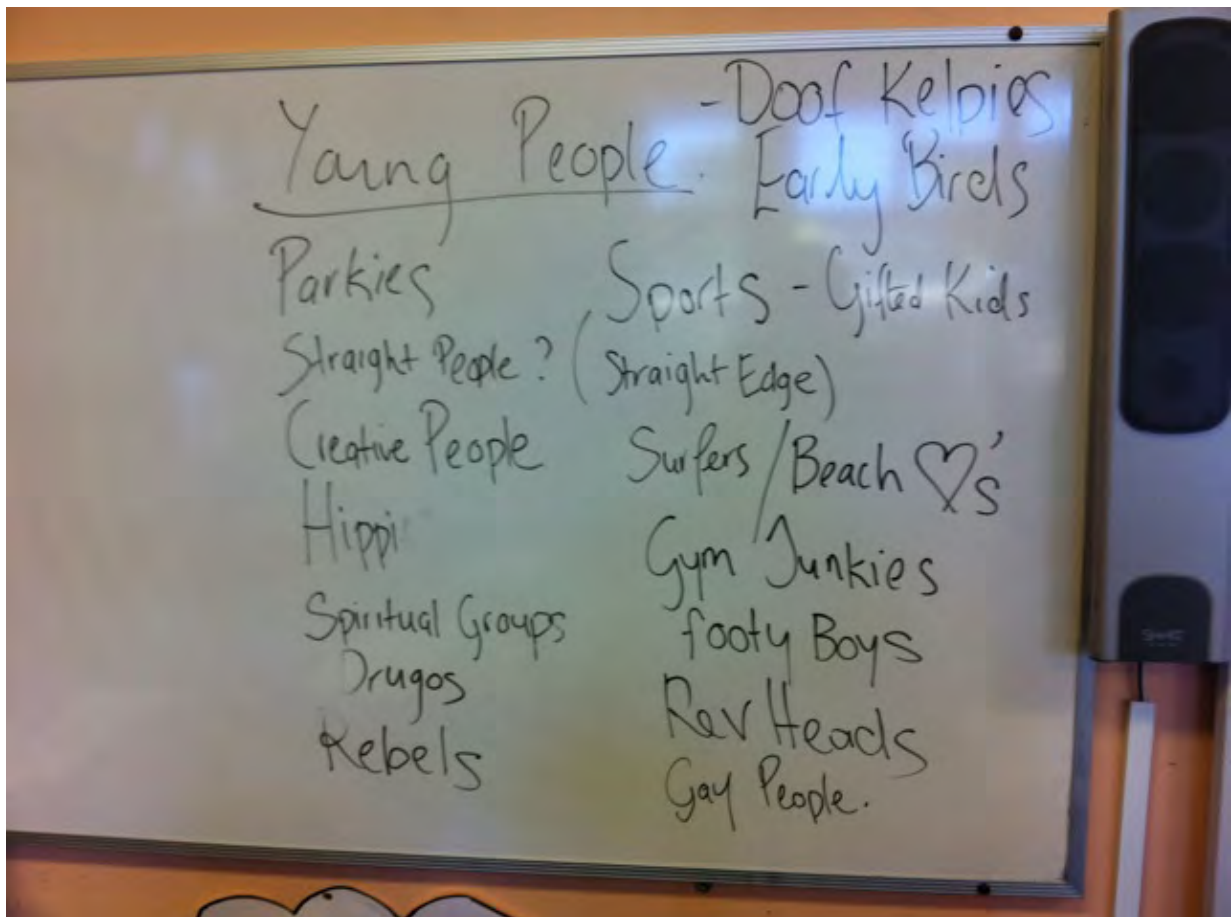 Young People.
- Doof Kelpies
Early Birds
Parkies
Straight People? (Straight Edge)
Creative People
Hippi
Spiritual Groups
Drugos
Rebels
Sports - Gifted Kids
Surfers / Beach ♡'s
Gym Junkies
footy Boys
Rev Heads
Gay People.
SMART